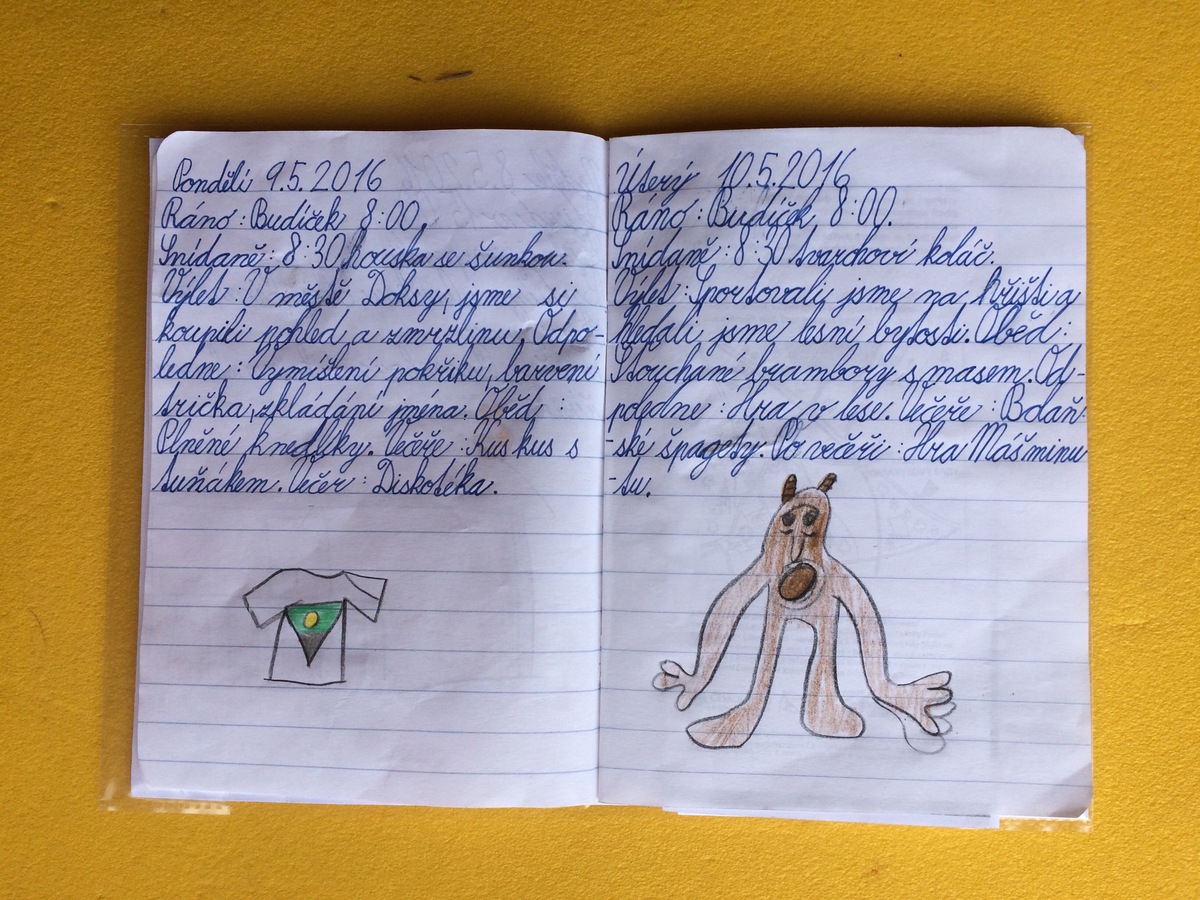 Pondělí 9.5.2016
Ráno: Budíček 8:00.
Snídaně: 8:30 houska se šunkou.
Výlet: V městě Doksy, jsme si
koupili pohled a zmrzlinu. Odpo-
ledne: Vymíšlení pokřiku, barvení
trička, zkládání jména. Oběd:
Plněné knedlíky. Večeře: Kus kus s
tuňákem. Večer: Diskotéka.
Úterý 10.5.2016
Ráno: Budíček 8:00.
Snídaně: 8:30 tvarohoví koláč.
Výlet: Sportovali jsme na hřišti a
hledali jsme lesní bytosti. Oběd:
Štouchané brambory s masem. Od-
poledne: Hra v lese. Večeře: Bolaň-
-ské špagety. Po večeři: Hra Máš minu
-tu.